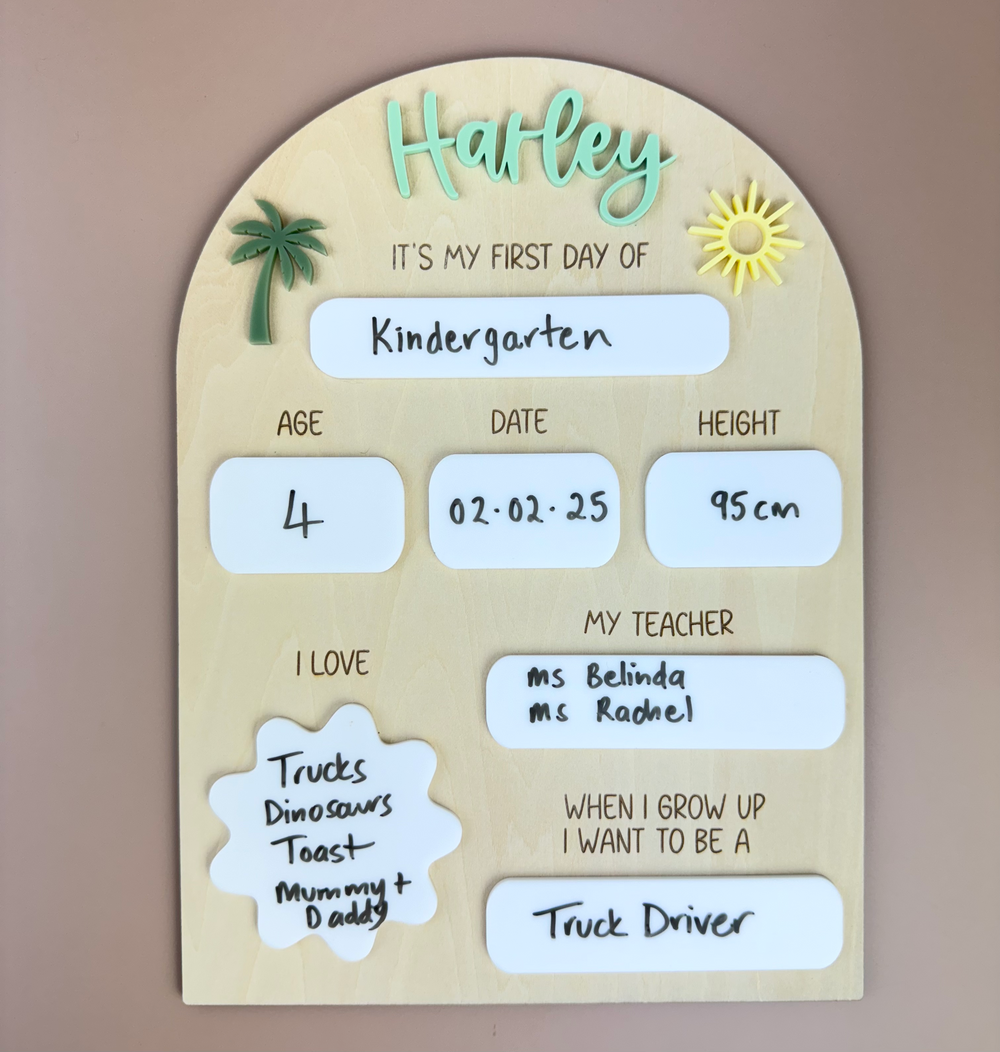 Harley
IT'S MY FIRST DAY OF
Kindergarten
AGE
DATE
HEIGHT
4
02.02.25
95cm
MY TEACHER
ms Belinda
ms Rachel
I LOVE
Trucks
Dinosaurs
Toast
Mummy +
Daddy
WHEN I GROW UP
I WANT TO BE A
Truck Driver